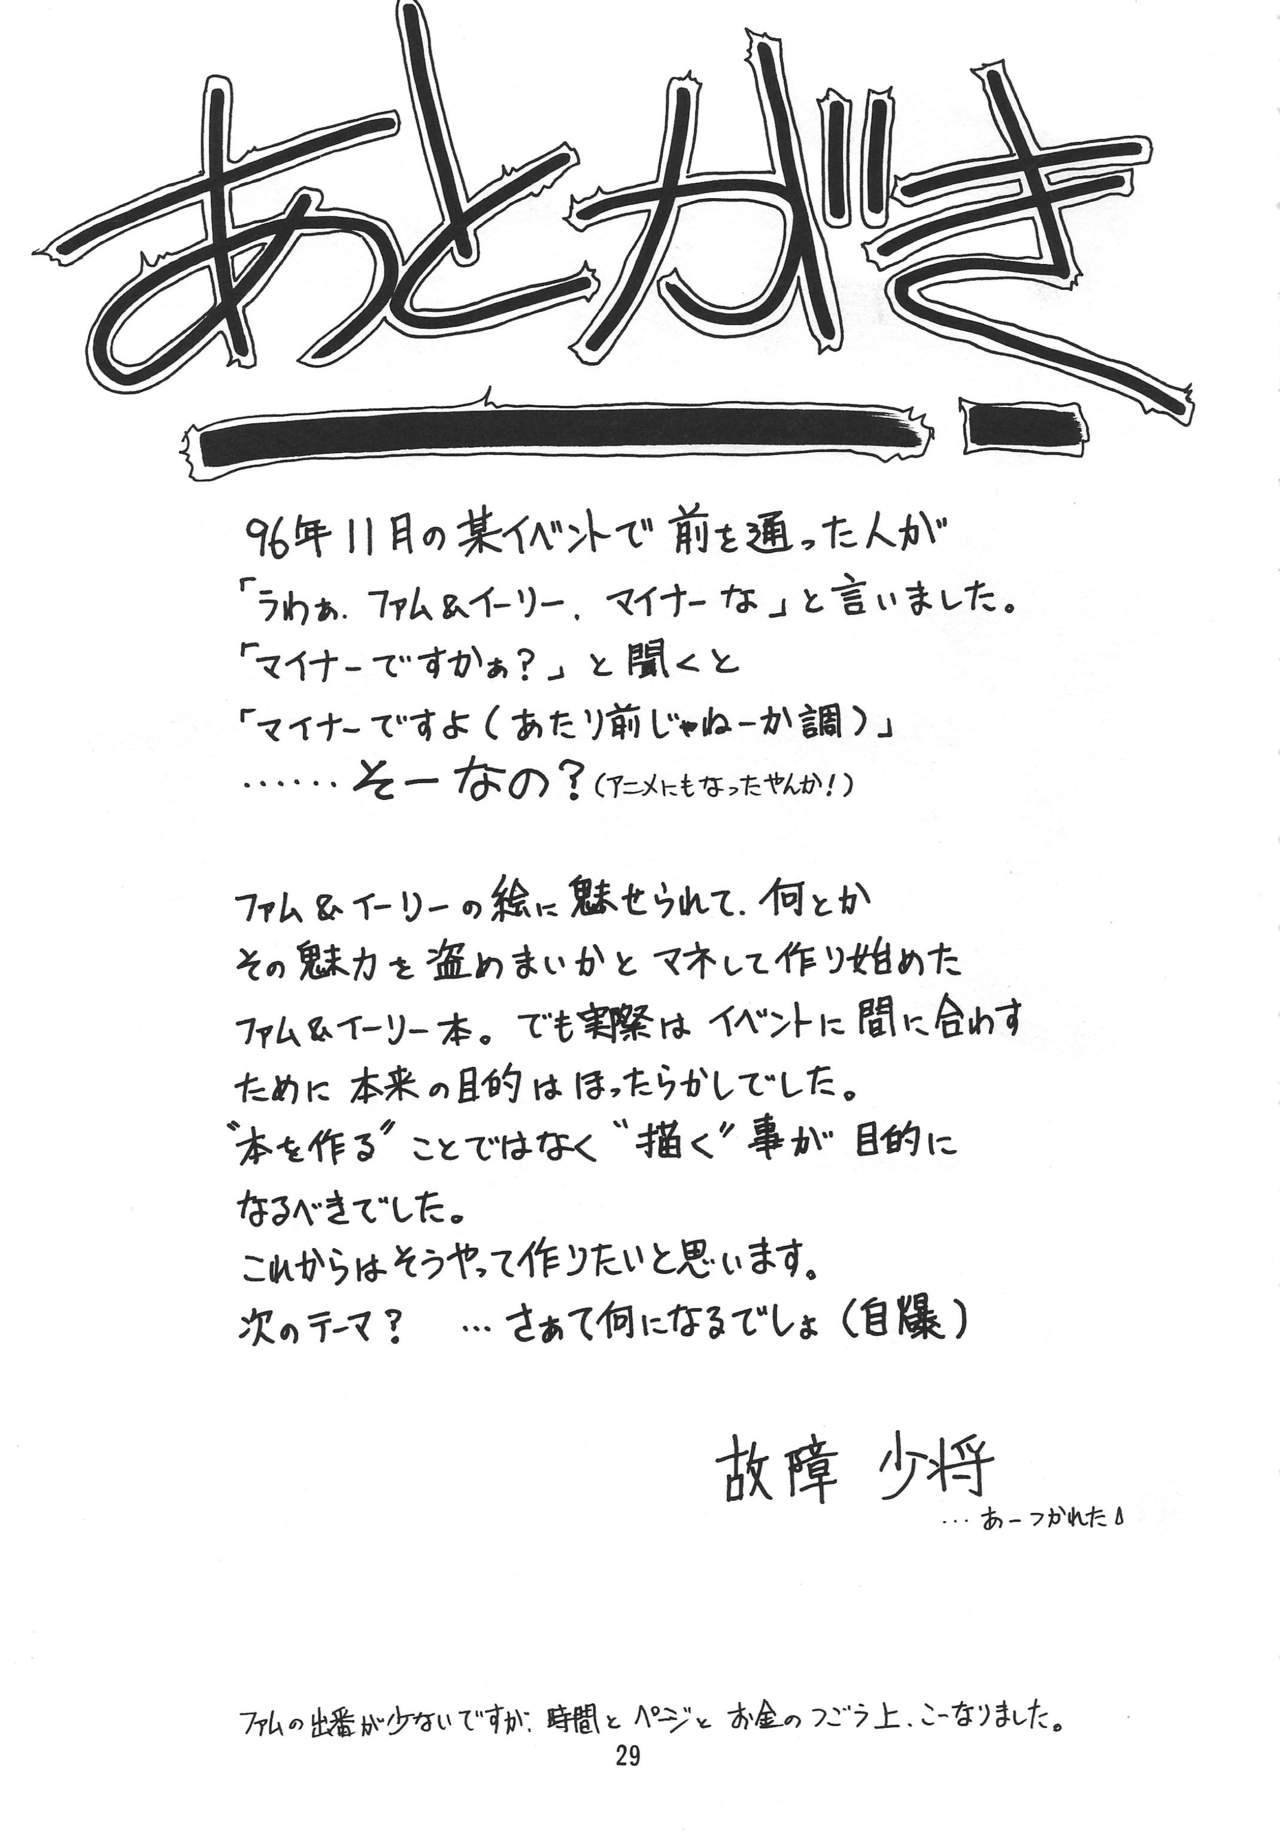 あとがき
96年11月の某イベントで前を通った人が
「うわぁ、ファム&イーリー、マイナーな」と言いました。
「マイナーですかぁ？」と聞くと
「マイナーですよ（あたり前じゃねーか調）」
……そーなの？（アニメにもなったやんか！）
ファム&イーリーの絵に魅せられて、何とか
その魅力を盗めまいかとマネして作り始めた
ファム&イーリー本。でも実際はイベントに間に合わす
ために本来の目的はほったらかしでした。
“本を作る”ことではなく“描く”事が目的に
なるべきでした。
これからはそうやって作りたいと思います。
次のテーマ？　…さぁて何になるでしょ（自爆）
故障 少将
…あーつかれた
ファムの出番が少ないですが、時間とページとお金のつごう上、こーなりました。
29